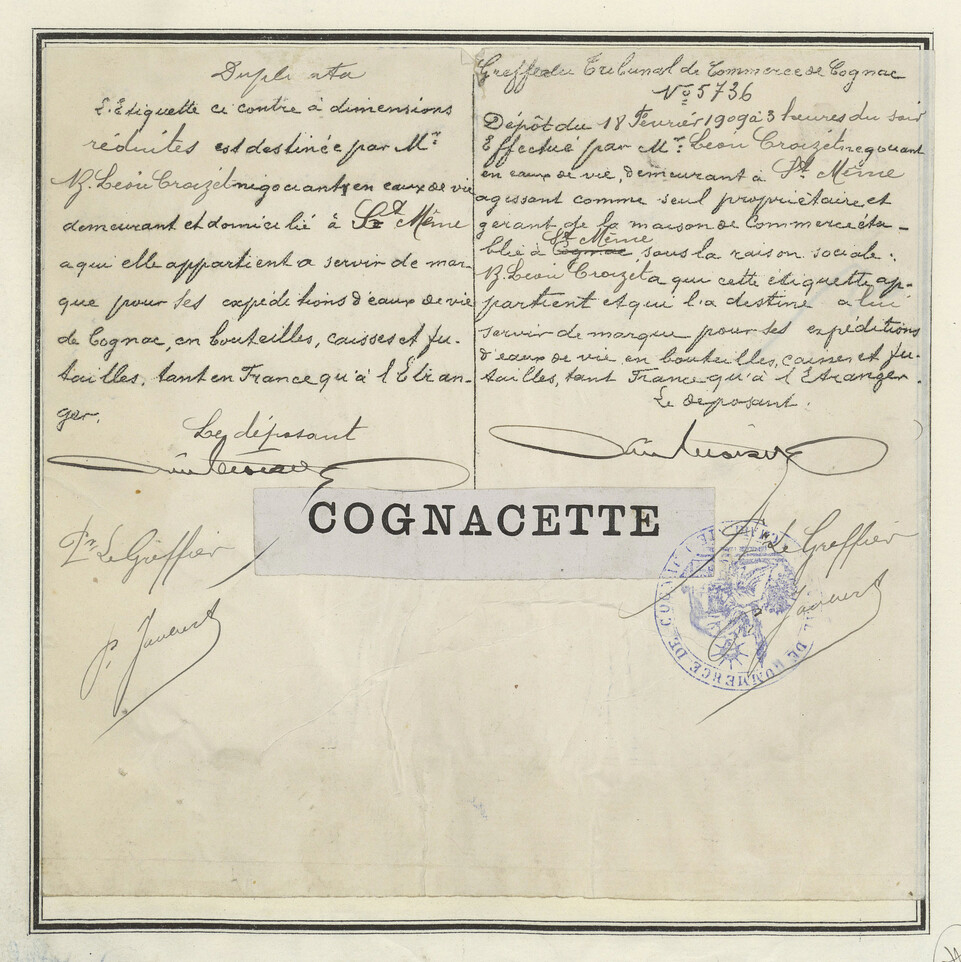 Duplicata
L'Etiquette ci contre à dimensions
réduites est destinée par Mr
B. Léon Croizet négociant en eaux de vie
demeurant et domicilié à St Même
a qui elle appartient a servir de mar-
que pour ses expéditions d'eaux de vie
de Cognac, en bouteilles, caisses et fu-
tailles, tant en France qu'à l'Etran-
ger.
Le déposant
Pr Le Greffier
P. 
Greffe du Tribunal de Commerce de Cognac
No 5736
Dépôt du 18 Fevrier 1909 à 3 heures du soir
Effectué par Mr Léon Croizet negociant
en eaux de vie, demeurant à St Même
agissant comme seul propriétaire et
gérant de la maison de Commerce éta-
St Même
blie à Cognac, sous la raison sociale:
B. Léon Croizet a qui cette étiquette ap-
partient et qui l'a destine a lui
servir de marque pour ses expéditions
d'eaux de vie en bouteilles, caisses et fu-
tailles, tant France qu'à l'Etranger.
Le deposant.
COGNACETTE
Le Greffier
COMMERCE DE COGNAC